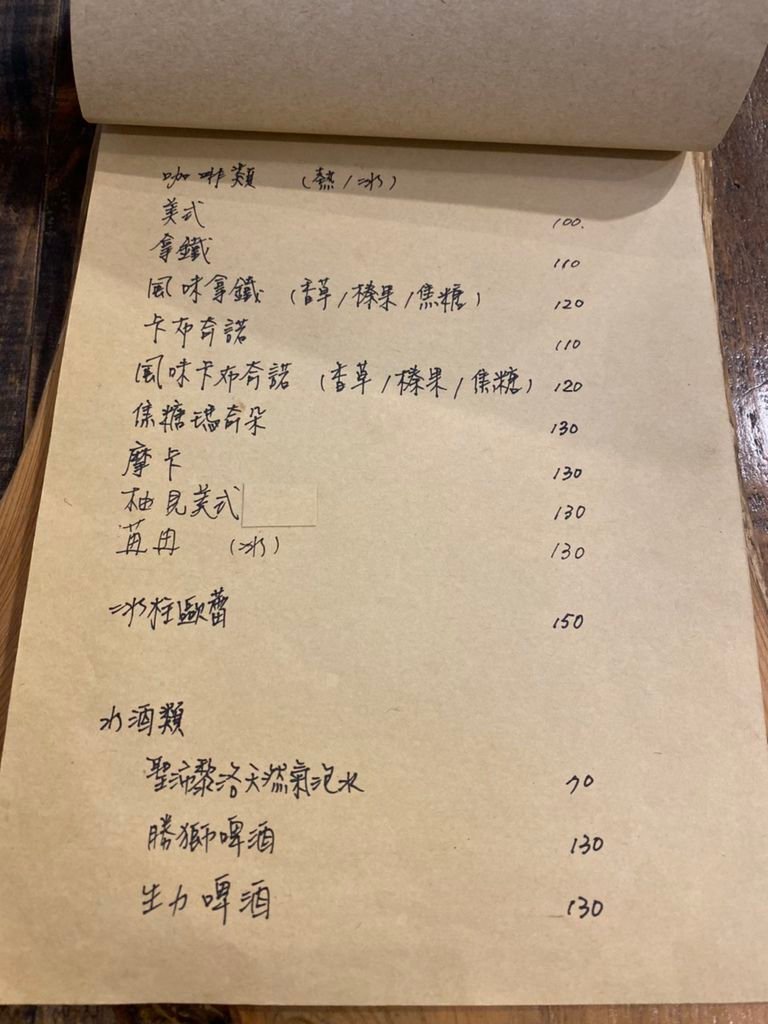 咖啡類 (熱/冰)
美式 100.
拿鐵 110
風味拿鐵 (香草/榛果/焦糖) 120
卡布奇諾 110
風味卡布奇諾 (香草/榛果/焦糖) 120
焦糖瑪奇朵 130
摩卡 130
柚見美式 130
苒冉 (冰) 130
冰柱歐蕾 150
水酒類
聖沛黎洛天然氣泡水 70
勝獅啤酒 130
生力啤酒 130